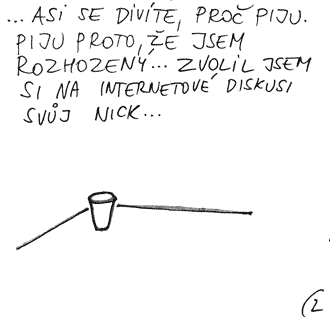 ... ASI SE DIVÍTE, PROČ PIJU.
PIJU PROTO, ŽE JSEM
ROZHOZENÝ... ZVOLIL JSEM
SI NA INTERNETOVÉ DISKUSI
SVŮJ NICK...
(2